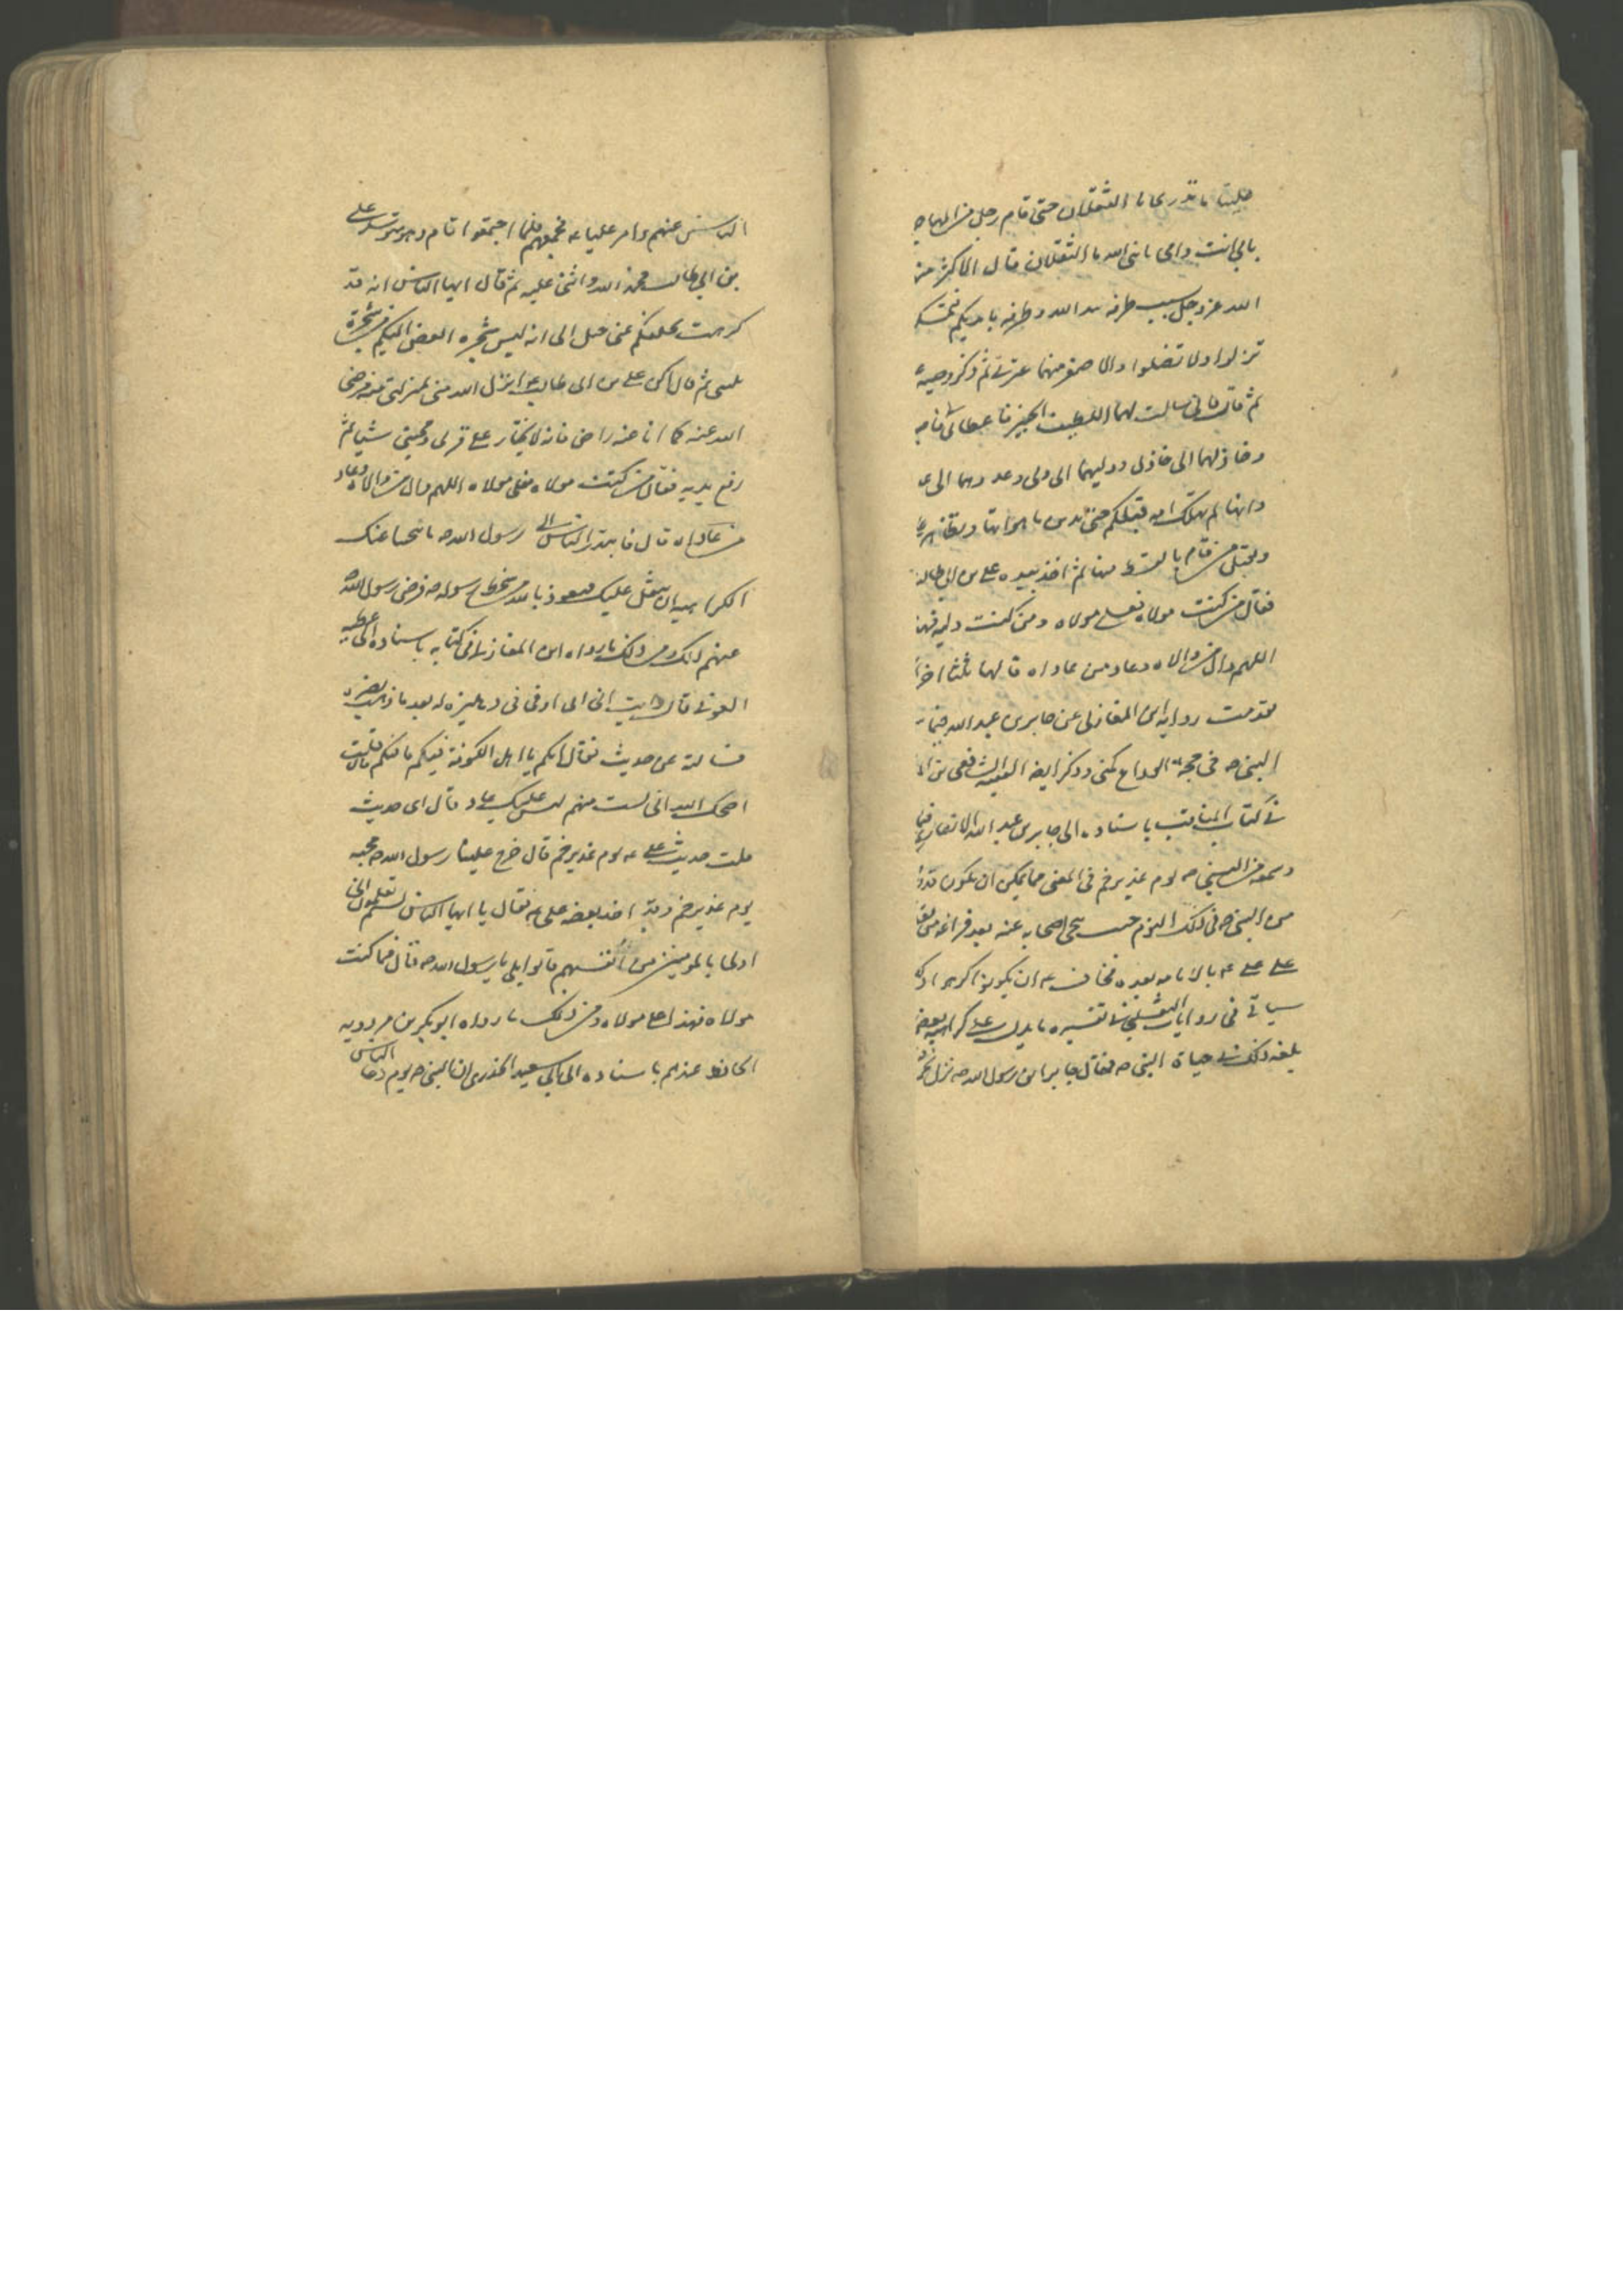 علينا ما ندري ما الثقلان حتى قام رجل من المهاجر
بابي انت وامي يا نبي الله ما الثقلان قال الاكبر منه
الله عز وجل سبب طرفه بيد الله وطرفه بايديكم فتمسك
تزلوا ولا تضلوا والاصغر منهما عترتي ثم ذكر وصيته
ثم قال فاني سالت لهما اللطيف الخبير فاعطاني
وخاذلهما الي خاذل ووليهما الى ولي وعدوهما الى ع
وانها لم تهلك امة قبلكم حتى تدين باهوائها وتظاهر
وتقتل من قام بالقسط منها ثم اخذ بيده علي بن ابي طالب
فقال من كنت مولاه فعلي مولاه ومن كنت وليه فهذ
اللهم وال من والاه وعاد من عاداه قالها ثلثا اخر
تقدمت رواية ابن المغازلي عن جابر بن عبد الله
النبي ص في حجة الوداع بمنى وذكر ايضا الفقيه الشافعي بن ال
في كتاب المناقب باسناده الى جابر بن عبد الله الانصاري فيما
وسمعه من النبي ص يوم غدير خم في المعنى مما يمكن ان يكون قد
من النبي ص في ذلك اليوم حيث تنحى اصحابه عنه بعد فراغه من
على علي ع بالامامة بعده فخاف ع ان يكونوا كرهوا ذلك
سياتي في روايات الثعلبي في تفسيره ما يدل على كراهية بعض
بلغه ذلك في حياة النبي ص فقال جابر ان رسول الله ص نزل بخم
الناس عنهم وامر عليا ع فجمعهم فلما اجتمعوا قام وهو متوسد علي
بن ابي طالب فحمد الله واثنى عليه ثم قال ايها الناس انه قد
كرهت تخلفكم عني حتى خيل الى انه ليس شجرة ابغض اليكم من شجرة
تليني ثم قال لكن علي بن ابي طالب انزل الله مني بمنزلتي منه فرضى
الله عنه كما انا عنه راض فانه لا يختار على قربي ومحبتي شيئا ثم
رفع يديه فقال من كنت مولاه فعلي مولاه اللهم وال من والاه وعاد
من عاداه قال فابتدر الناس الى رسول الله ص ما تنحينا عنك
الا كراهية ان نثقل عليك فنعوذ بالله من سخط رسوله ص فرضى رسول الله ص
عنهم ذلك ومن ذلك ما رواه ابن المغازلي في كتابه باسناده الى عطيه
العوفي قال رايت ابن ابي اوفى في دهليز له بعد ما ذهب بصره
فسالته عن حديث فقال انكم يا اهل الكوفة فيكم ما فيكم قلت
اصلحك الله اني لست منهم ليس عليك عار قال اي حديث
قلت حديث علي ع يوم غدير خم قال خرج علينا رسول الله ص حجته
يوم غدير خم وقد اخذ بعضد علي ع فقال يا ايها الناس الستم تعلمون اني
اولى بالمومنين من انفسهم قالوا بلى يا رسول الله ص قال فمن كنت
مولاه فهذا علي مولاه ومن ذلك ما رواه ابو بكر بن مردويه
الحافظ عندهم باسناده الى ابي سعيد الخدري ان النبي ص يوم دعا الناس